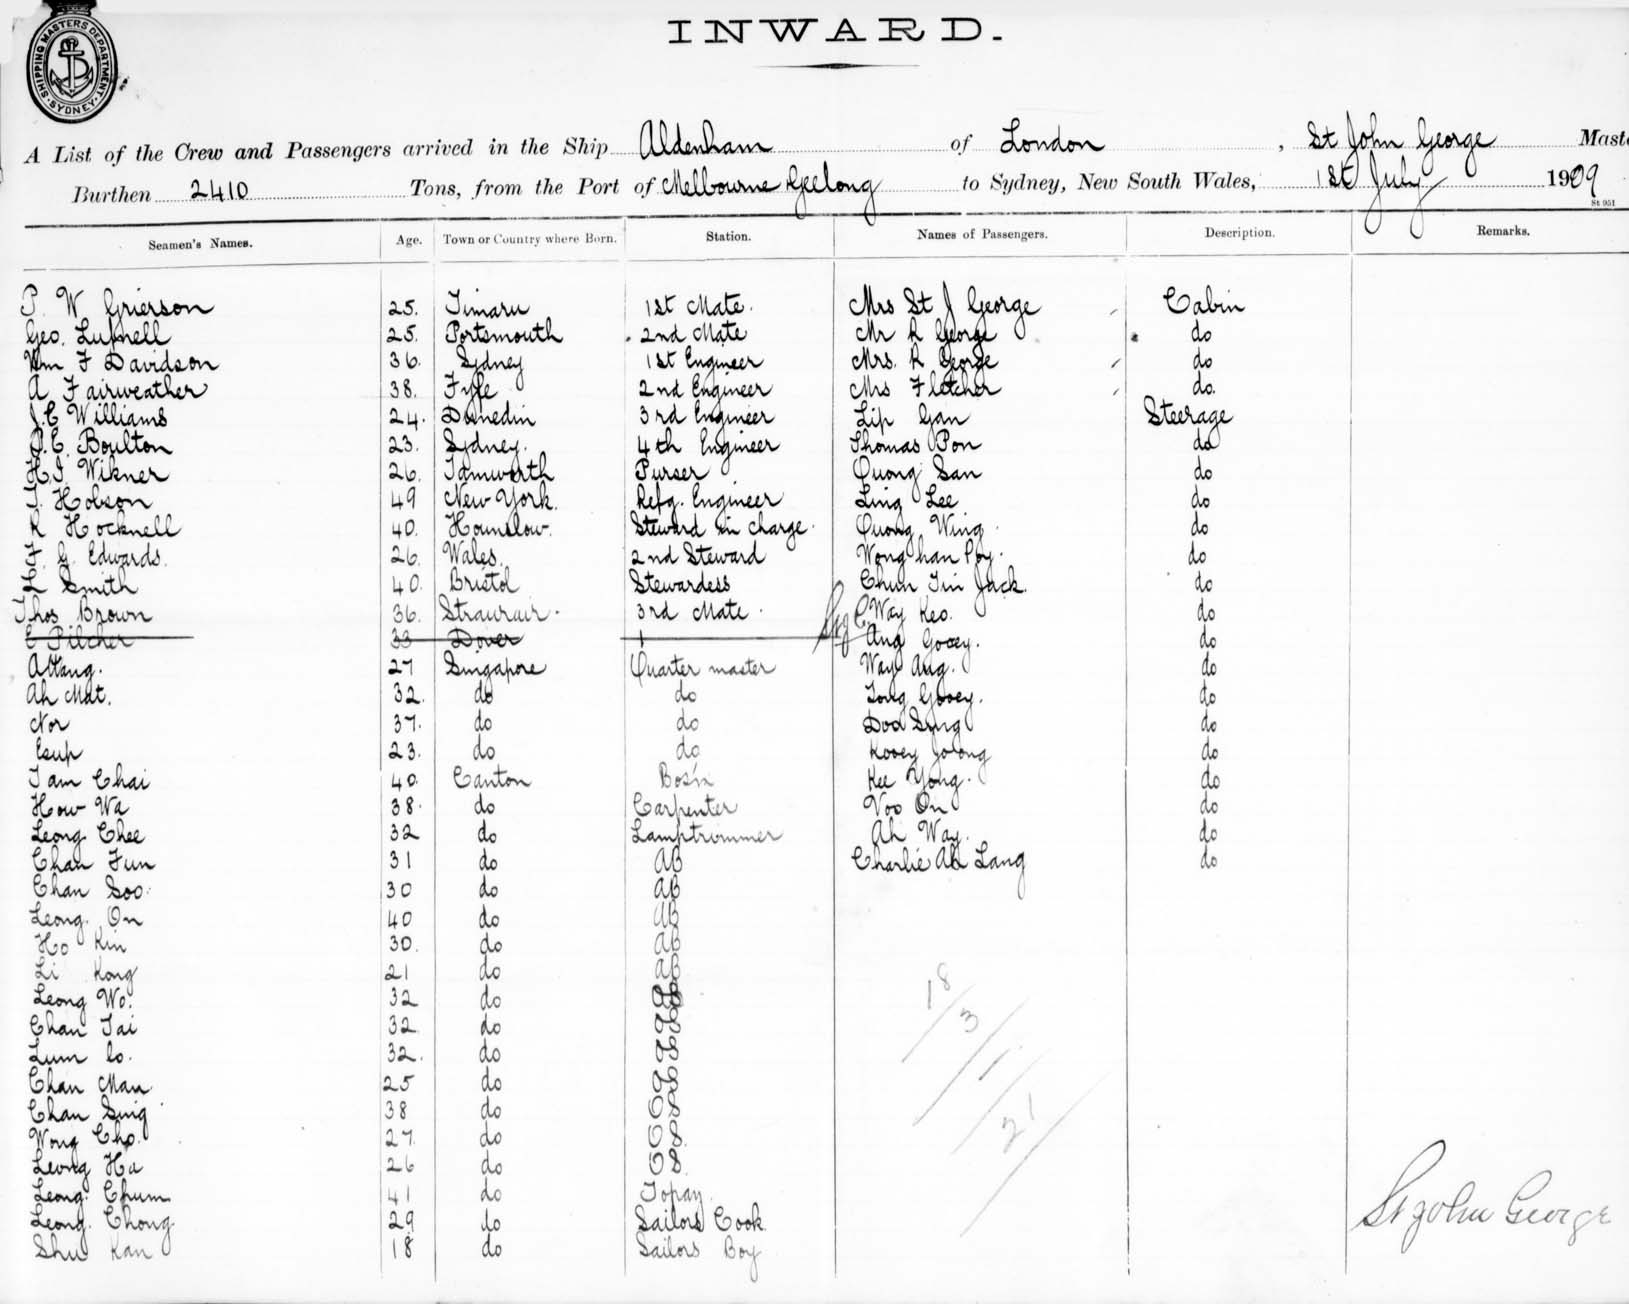 INWARD.
SHIPPING MASTERS DEPARTMENT · SYDNEY ·
A List of the Crew and Passengers arrived in the Ship Aldenham of London, St John George Maste
Burthen 2410 Tons, from the Port of Melbourne Geelong to Sydney, New South Wales, 1st July 1909
St 951
Seamen's Names. Age. Town or Country where Born. Station. Names of Passengers. Description. Remarks.
P. W Grierson 25. Timaru 1st Mate. Mrs St J George Cabin
Geo. 25. Portsmouth 2nd Mate Mr R George do
Wm F Davidson 36. Sydney 1st Engineer Mrs. R George do
A Fairweather 38. Fyfe 2nd Engineer Mrs Fletcher do.
J.C Williams 24. Dunedin 3rd Engineer Lip Gan Steerage
P.E. Boulton 23. Sydney. 4th Engineer Thomas Pon do
H.J. Wikner 26. Tamworth Purser Quong San do
T. Hobson 49 New York. Refg. Engineer Ling Lee do
R Hocknell 40. Hounslow. Steward in charge. Quong Wing. do
G. Edwards. 26. Wales. 2nd Steward Wong han Poy. do
Smith 40. Bristol Stewardess Chun Tin Jack. do
Thos Brown 36. Straurair. 3rd Mate. Way Keo. do
E Pilcher 33 Dover 1 Ang Gooey. do
Attang. 27 Singapore Quarter master Way Aug. do
Ah Mat. 32. do do Tong Gooey. do
Nor 37. do do Doo Sing do
Esup 23. do do Kooey do
Tam Chai 40. Canton Bos'n Kee Yong. do
How Wa 38. do Carpenter Voo On do
Leong Chee 32 do Lamptrimmer Ah Way. do
Chan Fun 31 do AB Charlie Ah Lang do
Chan Soo. 30 do AB
Leong. On 40 do AB
Ho Kin 30. do AB
Li Kong 21 do AB
Leong Wo. 32 do
Chan Tai 32. do
Lum Lo. 32. do
Chan Man 25 do
Chan Sing 38 do
Wong Cho. 27. do
Leong Ha 26 do
Leong. Chum 41 do Topay.
Leong. Chong 29 do Sailors Cook
Shu Kan 18 do Sailors Boy
18/3/1/21
St John George